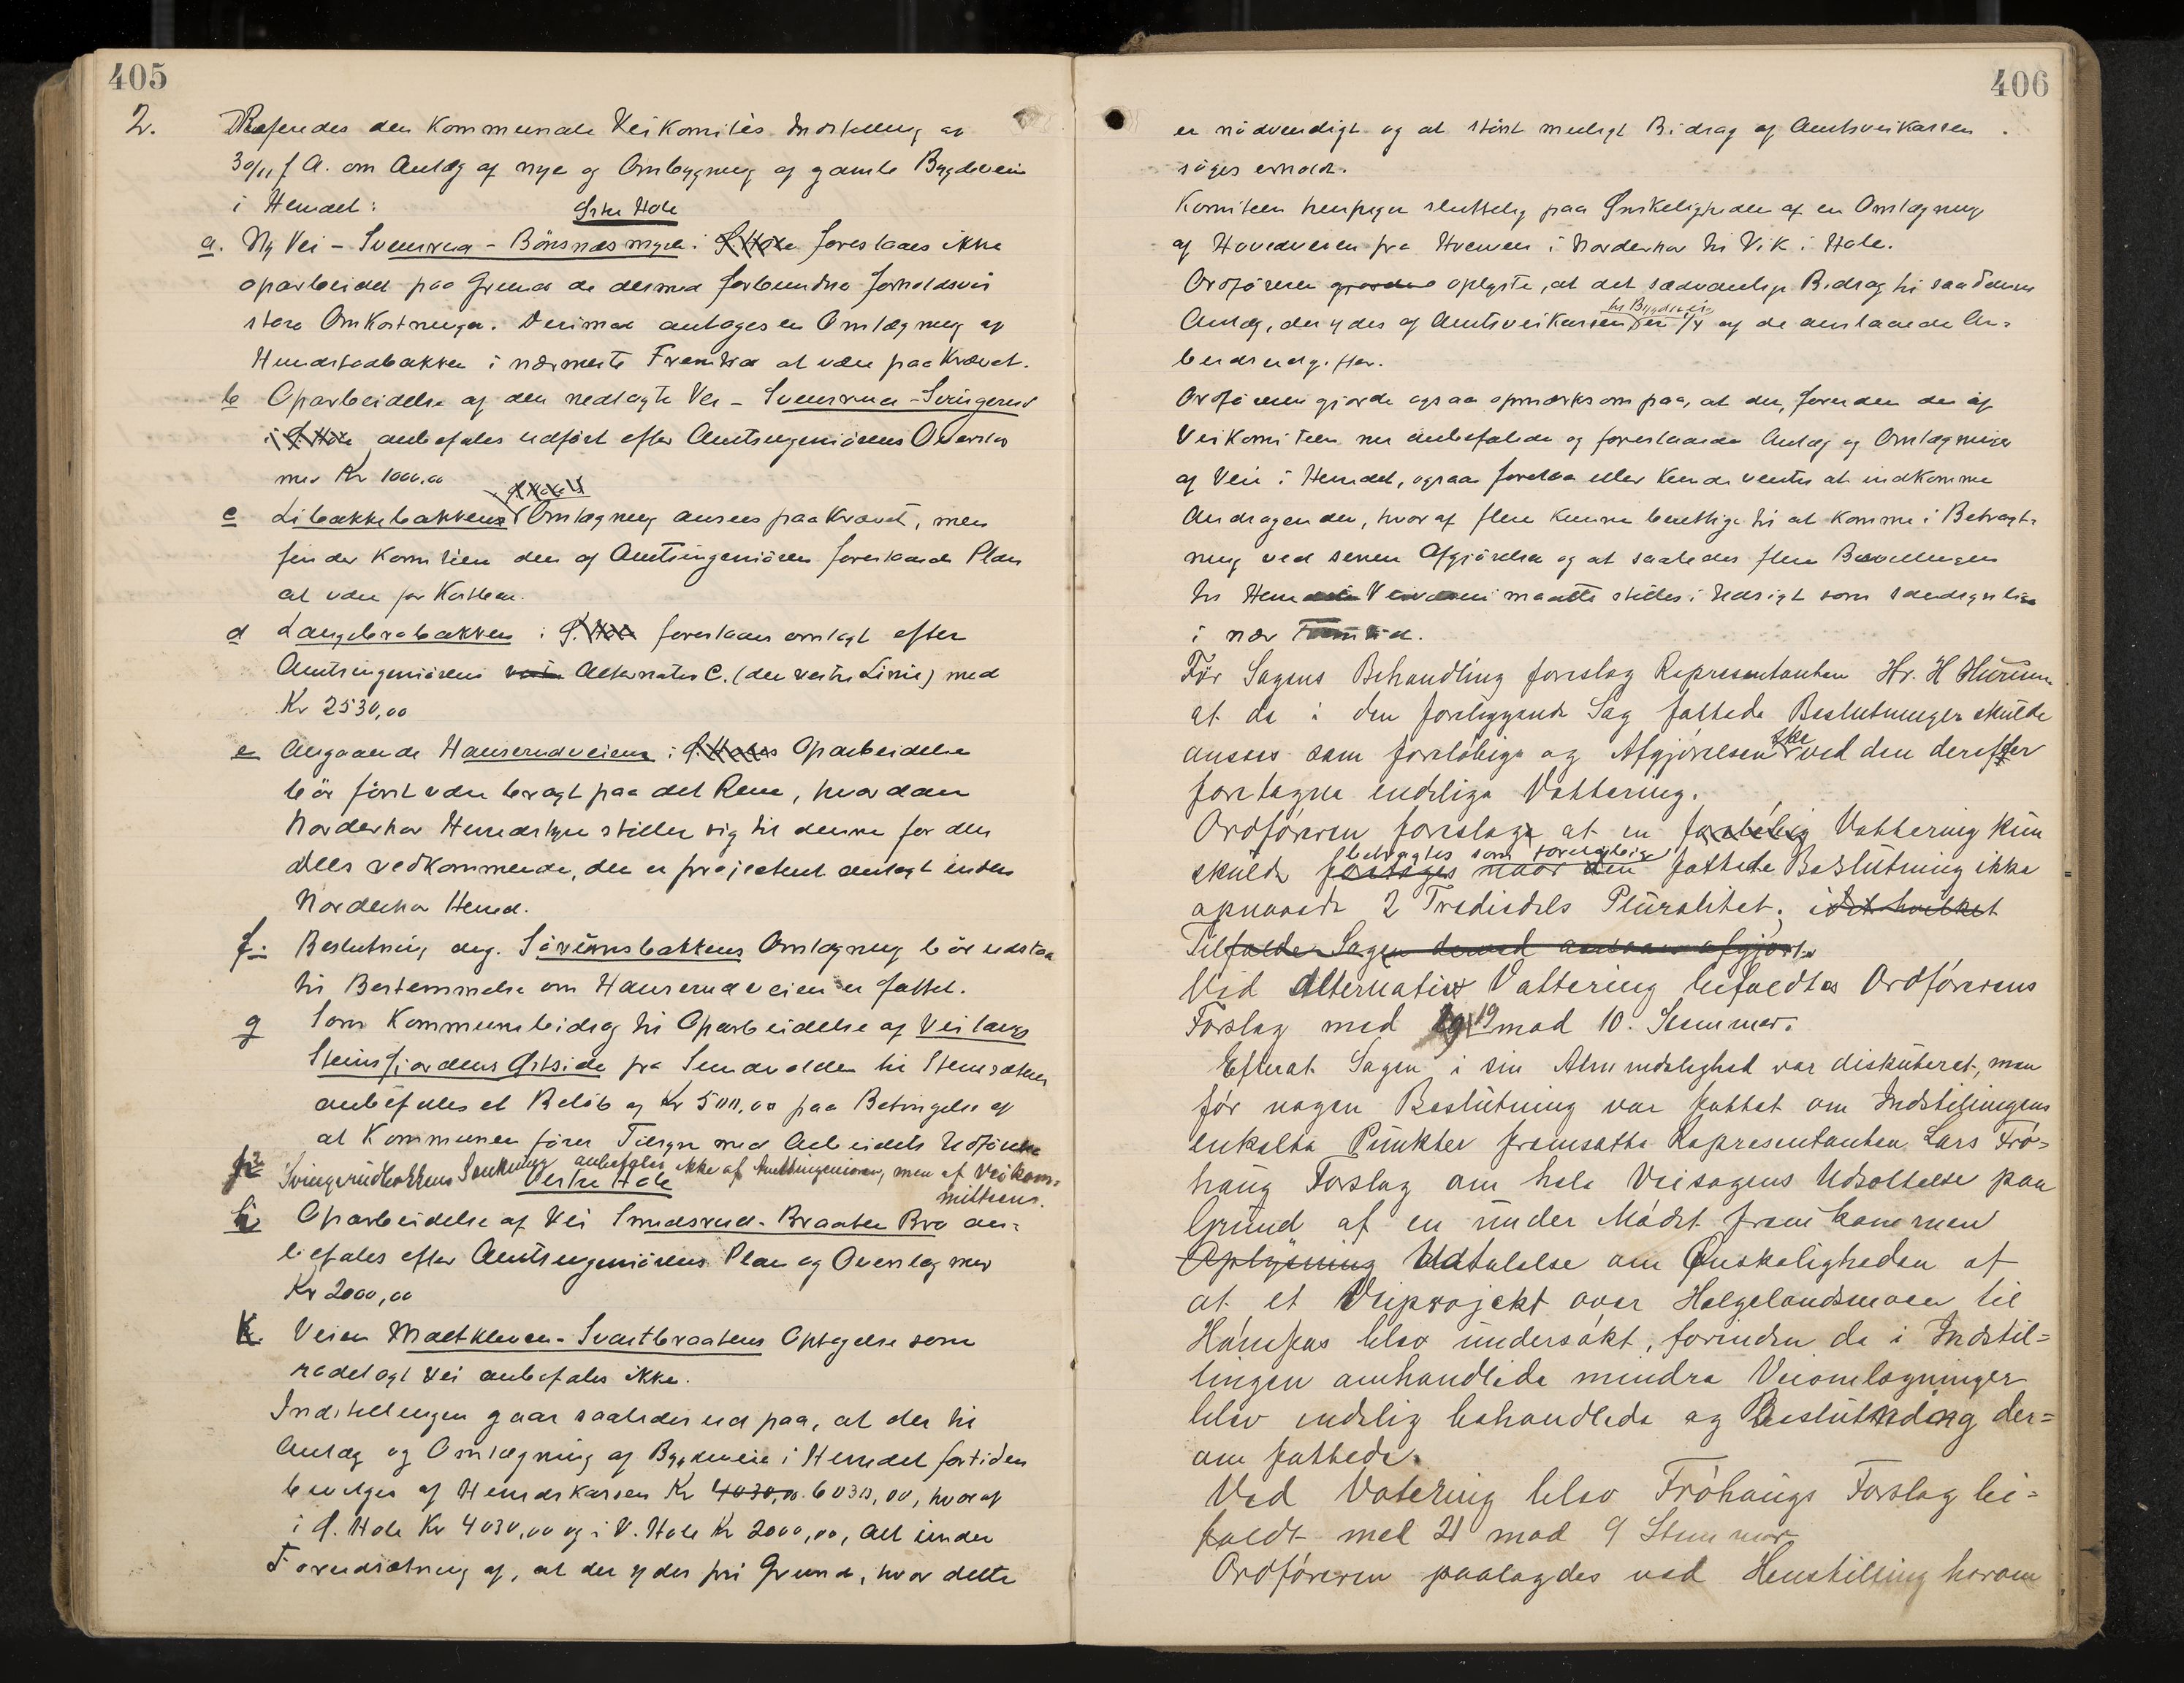 405
2. Refereredes den kommunale Veikomités Indstilling af
30/11 f A. om Anlæg af nye og Ombygning af gamle Bygdeveie
i Herredet:
Østre Hole
a. Ny Vei - Svensrud - Bönsnæsmyra i Ø. Hole foreslaaes ikke
oparbeidet paa Grund de dermed forbundne forholdsvis
store Omkostninger. Derimod antages en Omlægning af
Hundstadbakken i nærmeste Fremtid at være paakrævet.
b Oparbeidelse af den nedlagte Vei - Svensrud - Svingerud
i Ø. Hole anbefales udført efter Amtsingeniörens Overslag
med Kr 1000,00
Ø. Hole
c Libakkebakkens Omlægning ansees paakrævet, men
finder Komitéen den af Amtsingeniören foreslaaede Plan
at være for kostbar.
d Langebrobakken i Ø. Hole foreslaaes omlagt efter
Amtsingeniörens Alternativ C. (den vestre Linie) med
Kr 2530,00
e Angaaende Hanserudveiens i Ø. Holes Oparbeidelse
bör först være bragt paa det Rene, hvordan
Norderhov Herredstyre stiller sig til denne for den
Deels vedkommende, der er projecteret anlagt inden
Norderhov Herred.
f. Beslutning ang. Sörumsbakkens Omlægning bör udstaa
til Bestemmelse om Hanserudveien er fattet.
g Som Kommunebidrag til Oparbeidelse af Vei langs
Steinsfjordens Østside fra Sundvolden til Stensætra
anbefales et Beløb af Kr 500,00 paa Betingelse af
at Kommunen fører Tilsyn med Arbeidets Udførelse
h Svingerudbakkens Senkning anbefales ikke af Amtsingeniøren, men af Veikom-
mitteens.
Vestre Hole
i Oparbeidelse af Vei Smedsrud - Braaten Bro an-
befales efter Amtsingeniörens Plan og Overslag med
Kr 2000,00
k. Veien Maetkleven - Svartbraatens Optagelse som
rodelagt Vei anbefales ikke.
Indstillingen gaar saaledes ud paa, at der til
Anlæg og Omlægning af Bygdeveie i Herredet fortiden
bevilges af Herredskassen Kr 4030,00 6030,00, hvoraf
i Ø. Hole Kr 4030,00 og i V. Hole Kr 2000,00, alt under
Forudsætning af, at der ydes fri Grund, hvor dette
406
er nödvendigt og at störst muligt Bidrag af Amtsveikassen
söges erholdt.
Komiteen henpeger sluttelig paa Ønskeligheden af en Omlægning
af Hovedveien fra Hverven i Norderhov til Vik i Hole.
Ordföreren gjorde oplyste, at det sædvanlige Bidrag til saadanne
til Bygdeveie
Anlæg, der ydes af Amtsveikassen er 1/4 af de anslaaede Ar-
beidsudgifter.
Ordföreren gjorde ogsaa opmærksom paa, at der, foruden de af
Veikomiteen nu anbefalede og foreslaaede Anlæg og Omlægninger
af Veie i Herredet, ogsaa forelaa eller kunde ventes at indkomme
Andragender, hvoraf flere kunne berettige til at komme i Betragt-
ning ved senere Afgjörelse og at saaledes flere Bevillinger
til Herredets Veivæsen maatte stilles i Udsigt som sandsynlige
i nær Fremtid.
Før Sagens Behandling foreslog Repræsentanten Hr. H Hurum
at de i den foreliggende Sag fattede Beslutninger skulde
ansees som foreløbige og Afgjørelsen ske ved den derefter
foretagne endelige Vottering.
Ordføreren foreslog at en foreløbig Vottering kun
betragtes som foreløbig
skulde foretages naar den fattede Beslutning ikke
opnaaede 2 Trediedels Pluralitet; i det hvilket
Tilfælde Sagen derved ansaaes afgjort.
Ved Alternativ Vottering bifaldtes Ordførerens
Forslag med 19 mod 10. Stemmer.
Efterat Sagen i sin Almindelighed var diskuteret, men
før nogen Beslutning var fattet om Indstillingens
enkelte Punkter fremsatte Repræsentanten Lars Frø-
haug Forslag om hele Veisagens Udsættelse paa
Grund af en under Mødet fremkommen
Oplysning Udtalelse om Ønskeligheden af
at et Veiprojekt over Helgelandsmoen til
Hønefos blev undersøkt, forinden de i Indstil-
lingen omhandlede mindre Veiomlægninger
blev endelig behandlede og Beslutning der-
om fattede.
Ved Votering blev Frøhaugs Forslag bi-
faldt med 21 mod 9 Stemmer
Ordføreren paalagdes ved Henstilling herom